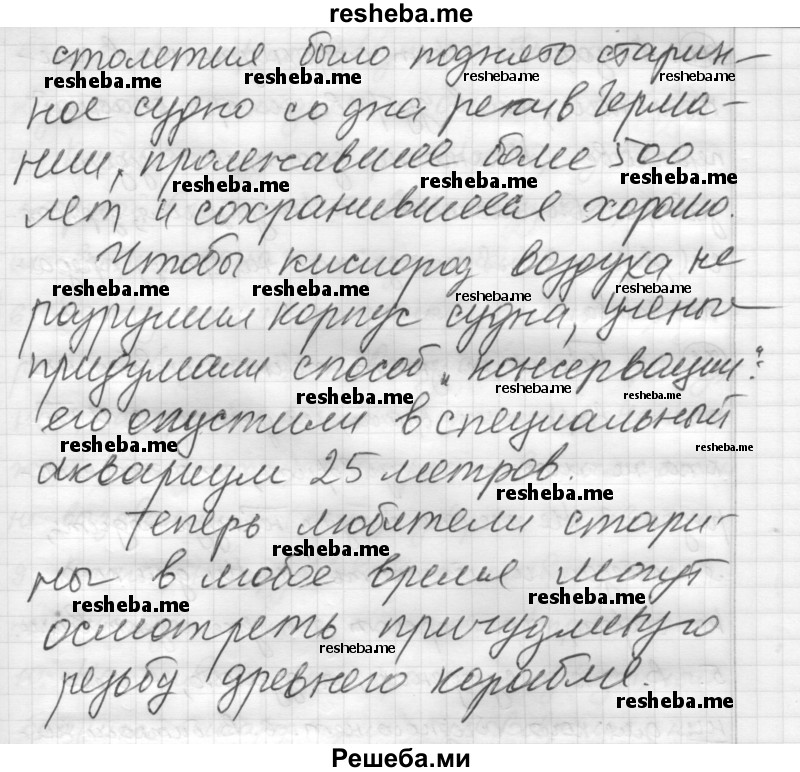 resheba.me
столетия было поднято старин-
resheba.me resheba.me resheba.me resheba.me
ное судно со дна реки в Герма-
нии, пролежавшее более 500
resheba.me resheba.me resheba.me
лет и сохранившееся хорошо.
Чтобы кислород воздуха не
resheba.me resheba.me resheba.me resheba.me
разрушил корпус судна, ученые
придумали способ „консервации":
resheba.me resheba.me resheba.me
его опустили в специальный
resheba.me resheba.me
аквариум 25 метров.
resheba.me
Теперь любители стари-
resheba.me
ны в любое время могут
resheba.me resheba.me
осмотреть причудливую
resheba.me
резьбу древнего корабля.
resheba.me
Решеба.ми